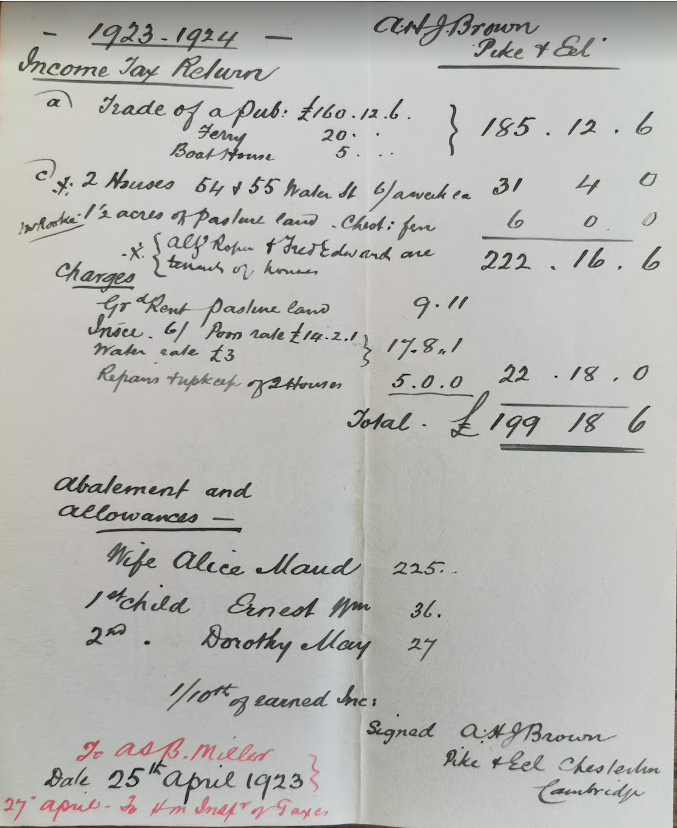 - 1923-1924 -
A.H.J Brown
Pike & Eel
Income Tax Return
a) Trade of a Pub: £160.12.6.
Ferry 20 . .
Boat House 5 . . .
} 185 . 12 . 6
c) x. 2 Houses 54 & 55 Water St 6/ a week ea 31 4 0
1½ acres of Pasture land . Chest: fen 6 0 0
x. { Alfd Roper & Fred Edward are
tenants of houses
222 . 16 . 6
Charges
Grd Rent pasture land 9.11
Insce. 6/ Poor rate £14.2.1
Water rate £3
} 17.8.1
Repairs & upkeep of 2 Houses 5.0.0 22 . 18 . 0
Total . £ 199 18 6
Abatement and
Allowances —
Wife Alice Maud 225..
1st child Ernest Wm 36.
2nd . Dorothy May 27
1/10th of earned Inc:
Signed A.H.J Brown
Pike & Eel Chesterton
Cambridge
To A.S.B. Miller
Date 25th April 1923 }
27 April - To H m Inspr of Taxes